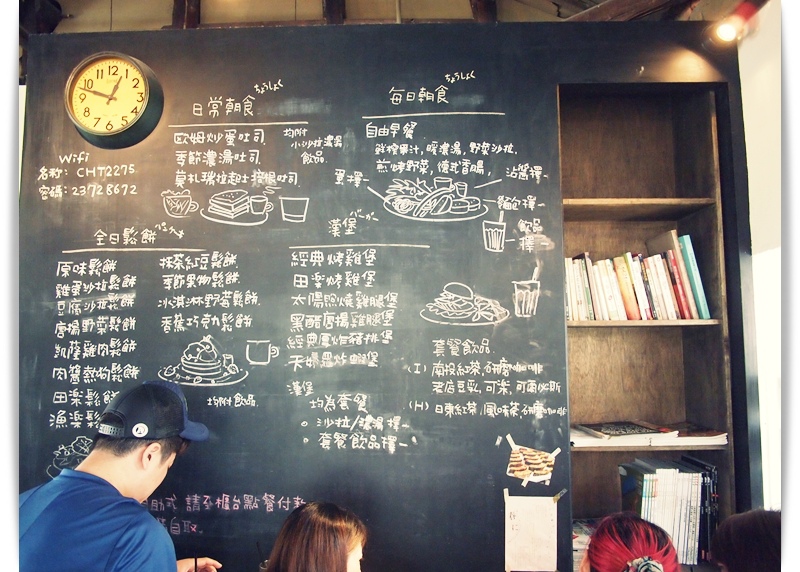 日常朝食 ちょうしょく
歐姆炒蛋吐司
季節濃湯吐司
莫札瑞拉起士
均附
小沙拉濃湯
飲品
每日朝食 ちょうしょく
自由早餐
鮮榨果汁,暖濃湯,野菜沙拉,
煎烤野菜,德式香腸,
蛋擇一
沾醬擇一
麵包擇一
飲品
擇一
Wifi
名称: CHT2275
密碼: 23728672
全日鬆餅
原味鬆餅
雞蛋沙拉鬆餅
豆腐沙拉鬆餅
唐揚野菜鬆餅
凱薩雞肉鬆餅
肉醬熱狗鬆餅
田楽鬆餅
漁楽鬆
抹茶紅豆鬆餅
季節果物鬆餅
冰淇淋野莓鬆餅
香蕉巧克力鬆餅
均附飲品
漢堡 バーガー
經典烤雞堡
田楽烤雞堡
太陽照燒雞腿堡
黑醋唐揚雞腿堡
經典厚炸豬排堡
天婦羅炒蝦堡
漢堡
均為套餐
沙拉/濃湯擇一
套餐飲品擇一
套餐飲品
(I) 南投紅茶
(H) 日東紅茶
自助式 請至櫃台點餐付款
自取。
12 1 2 3 4 5 6 7 8 9 10 11